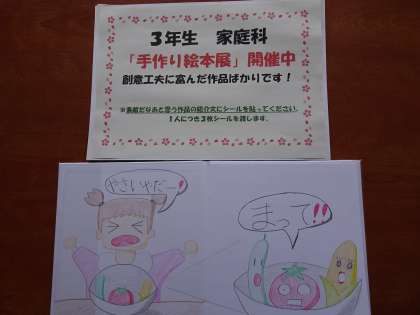 3年生 家庭科
「手作り絵本展」開催中
創意工夫に富んだ作品ばかりです！
※素敵だなあと思う作品の紹介文にシールを貼ってください。
1人につき3枚シールを渡します。
やさいやだー！
まって！！